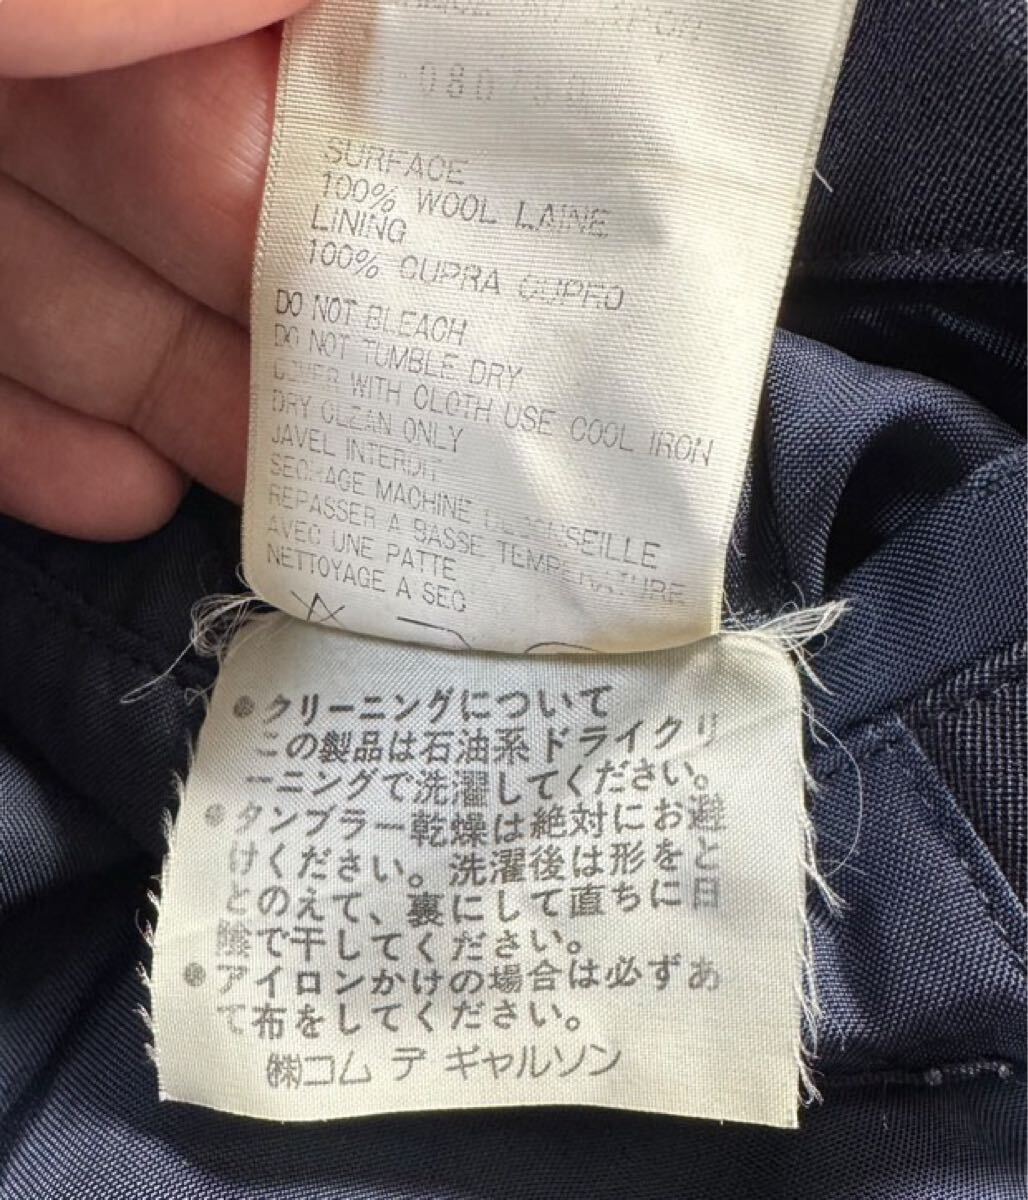 SURFACE
100% WOOL LAINE
LINING
100% CUPRA CUPRO
DO NOT BLEACH
DO NOT TUMBLE DRY
COVER WITH CLOTH USE COOL IRON
DRY CLEAN ONLY
JAVEL INTERDIT
SECHAGE MACHINE DECONSEILLE
REPASSER A BASSE TEMPERATURE
AVEC UNE PATTE
NETTOYAGE A SEC
※クリーニングについて
この製品は石油系ドライクリ
ーニングで洗濯してください。
※タンブラー乾燥は絶対にお避
けください。洗濯後は形をと
とのえて、裏にして直ちに日
陰で干してください。
※アイロンかけの場合は必ずあ
て布をしてください。
㈱コム デ ギャルソン